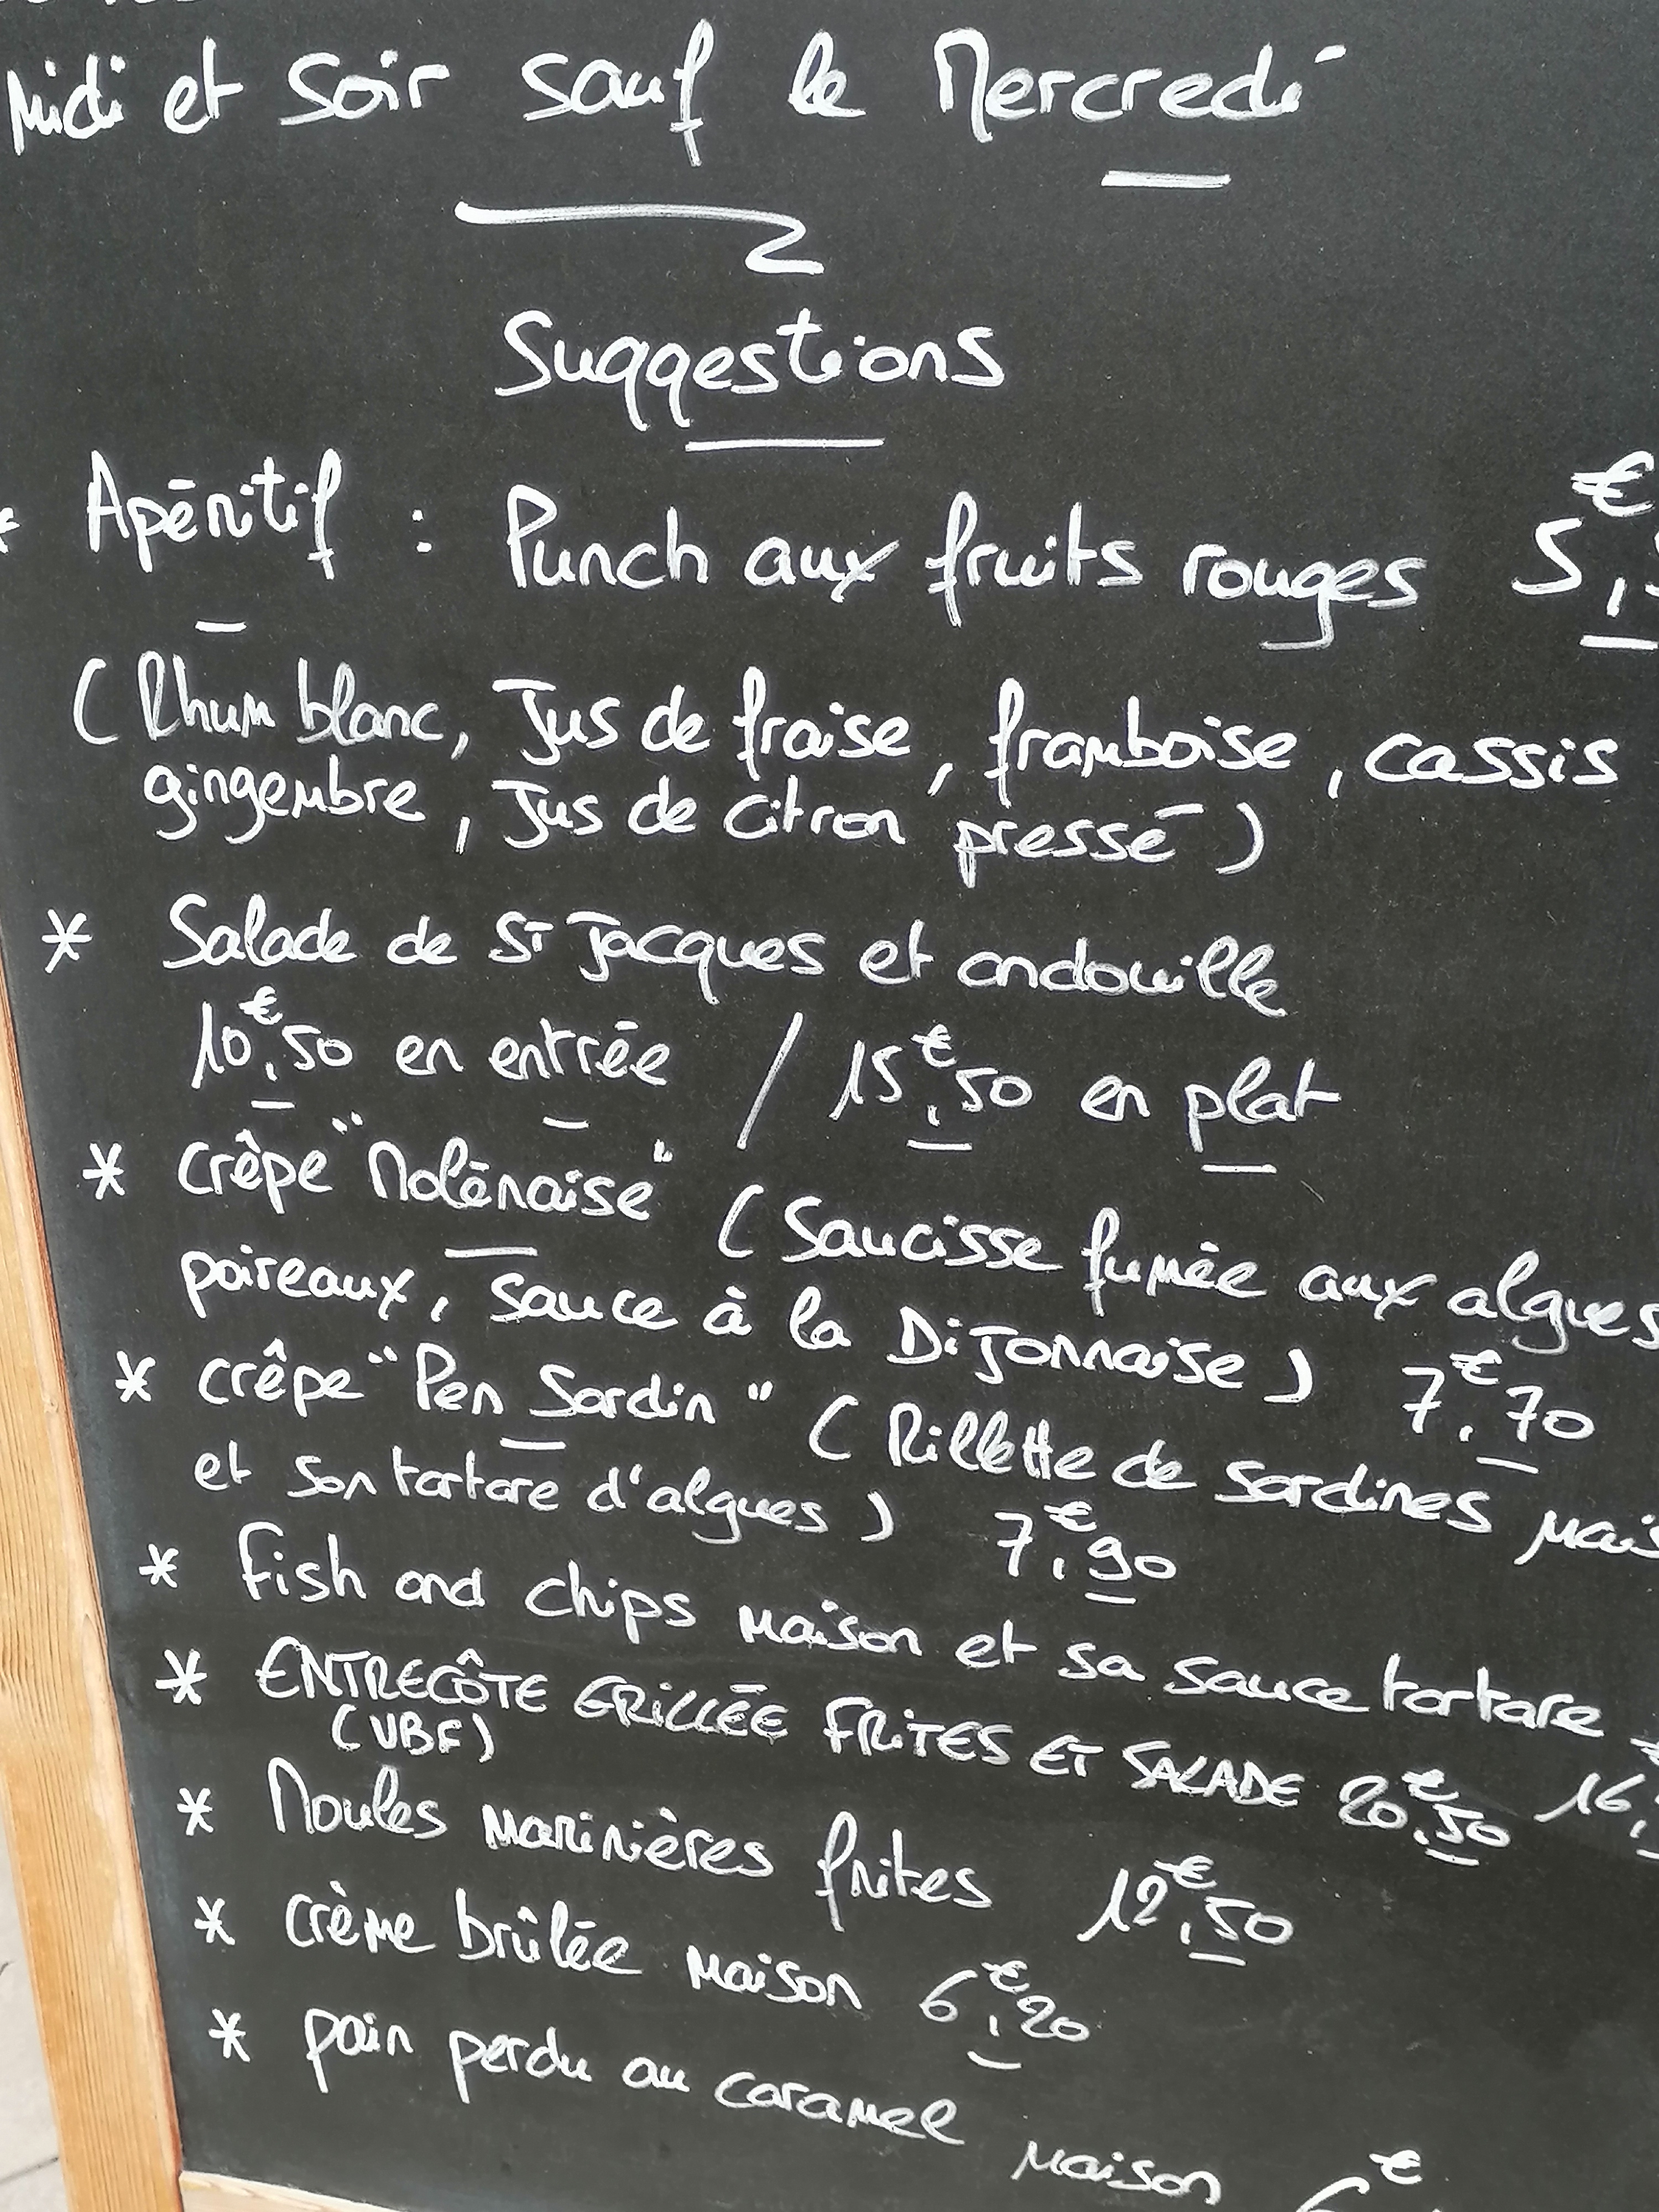 Midi et Soir sauf le Mercredi
Suggestions
* Apéritif : Punch aux fruits rouges 5,
(Rhum blanc, Jus de fraise, framboise, cassis
gingembre, Jus de citron pressé)
* Salade de St Jacques et andouille
10€,50 en entrée / 15€,50 en plat
* crêpe "Molénaise" (Saucisse fumée aux algues
poireaux, sauce à la Dijonnaise) 7€,70
* crêpe "Pen Sardin" (Rillette de sardines mais
et son tartare d'algues) 7€,90
* Fish and chips maison et sa sauce tartare 16,
* ENTRECÔTE GRILLÉE FRITES ET SALADE 20€,50
(VBF)
* Moules marinières frites 12€,50
* crème brûlée maison 6€,20
* pain perdu au caramel maison €